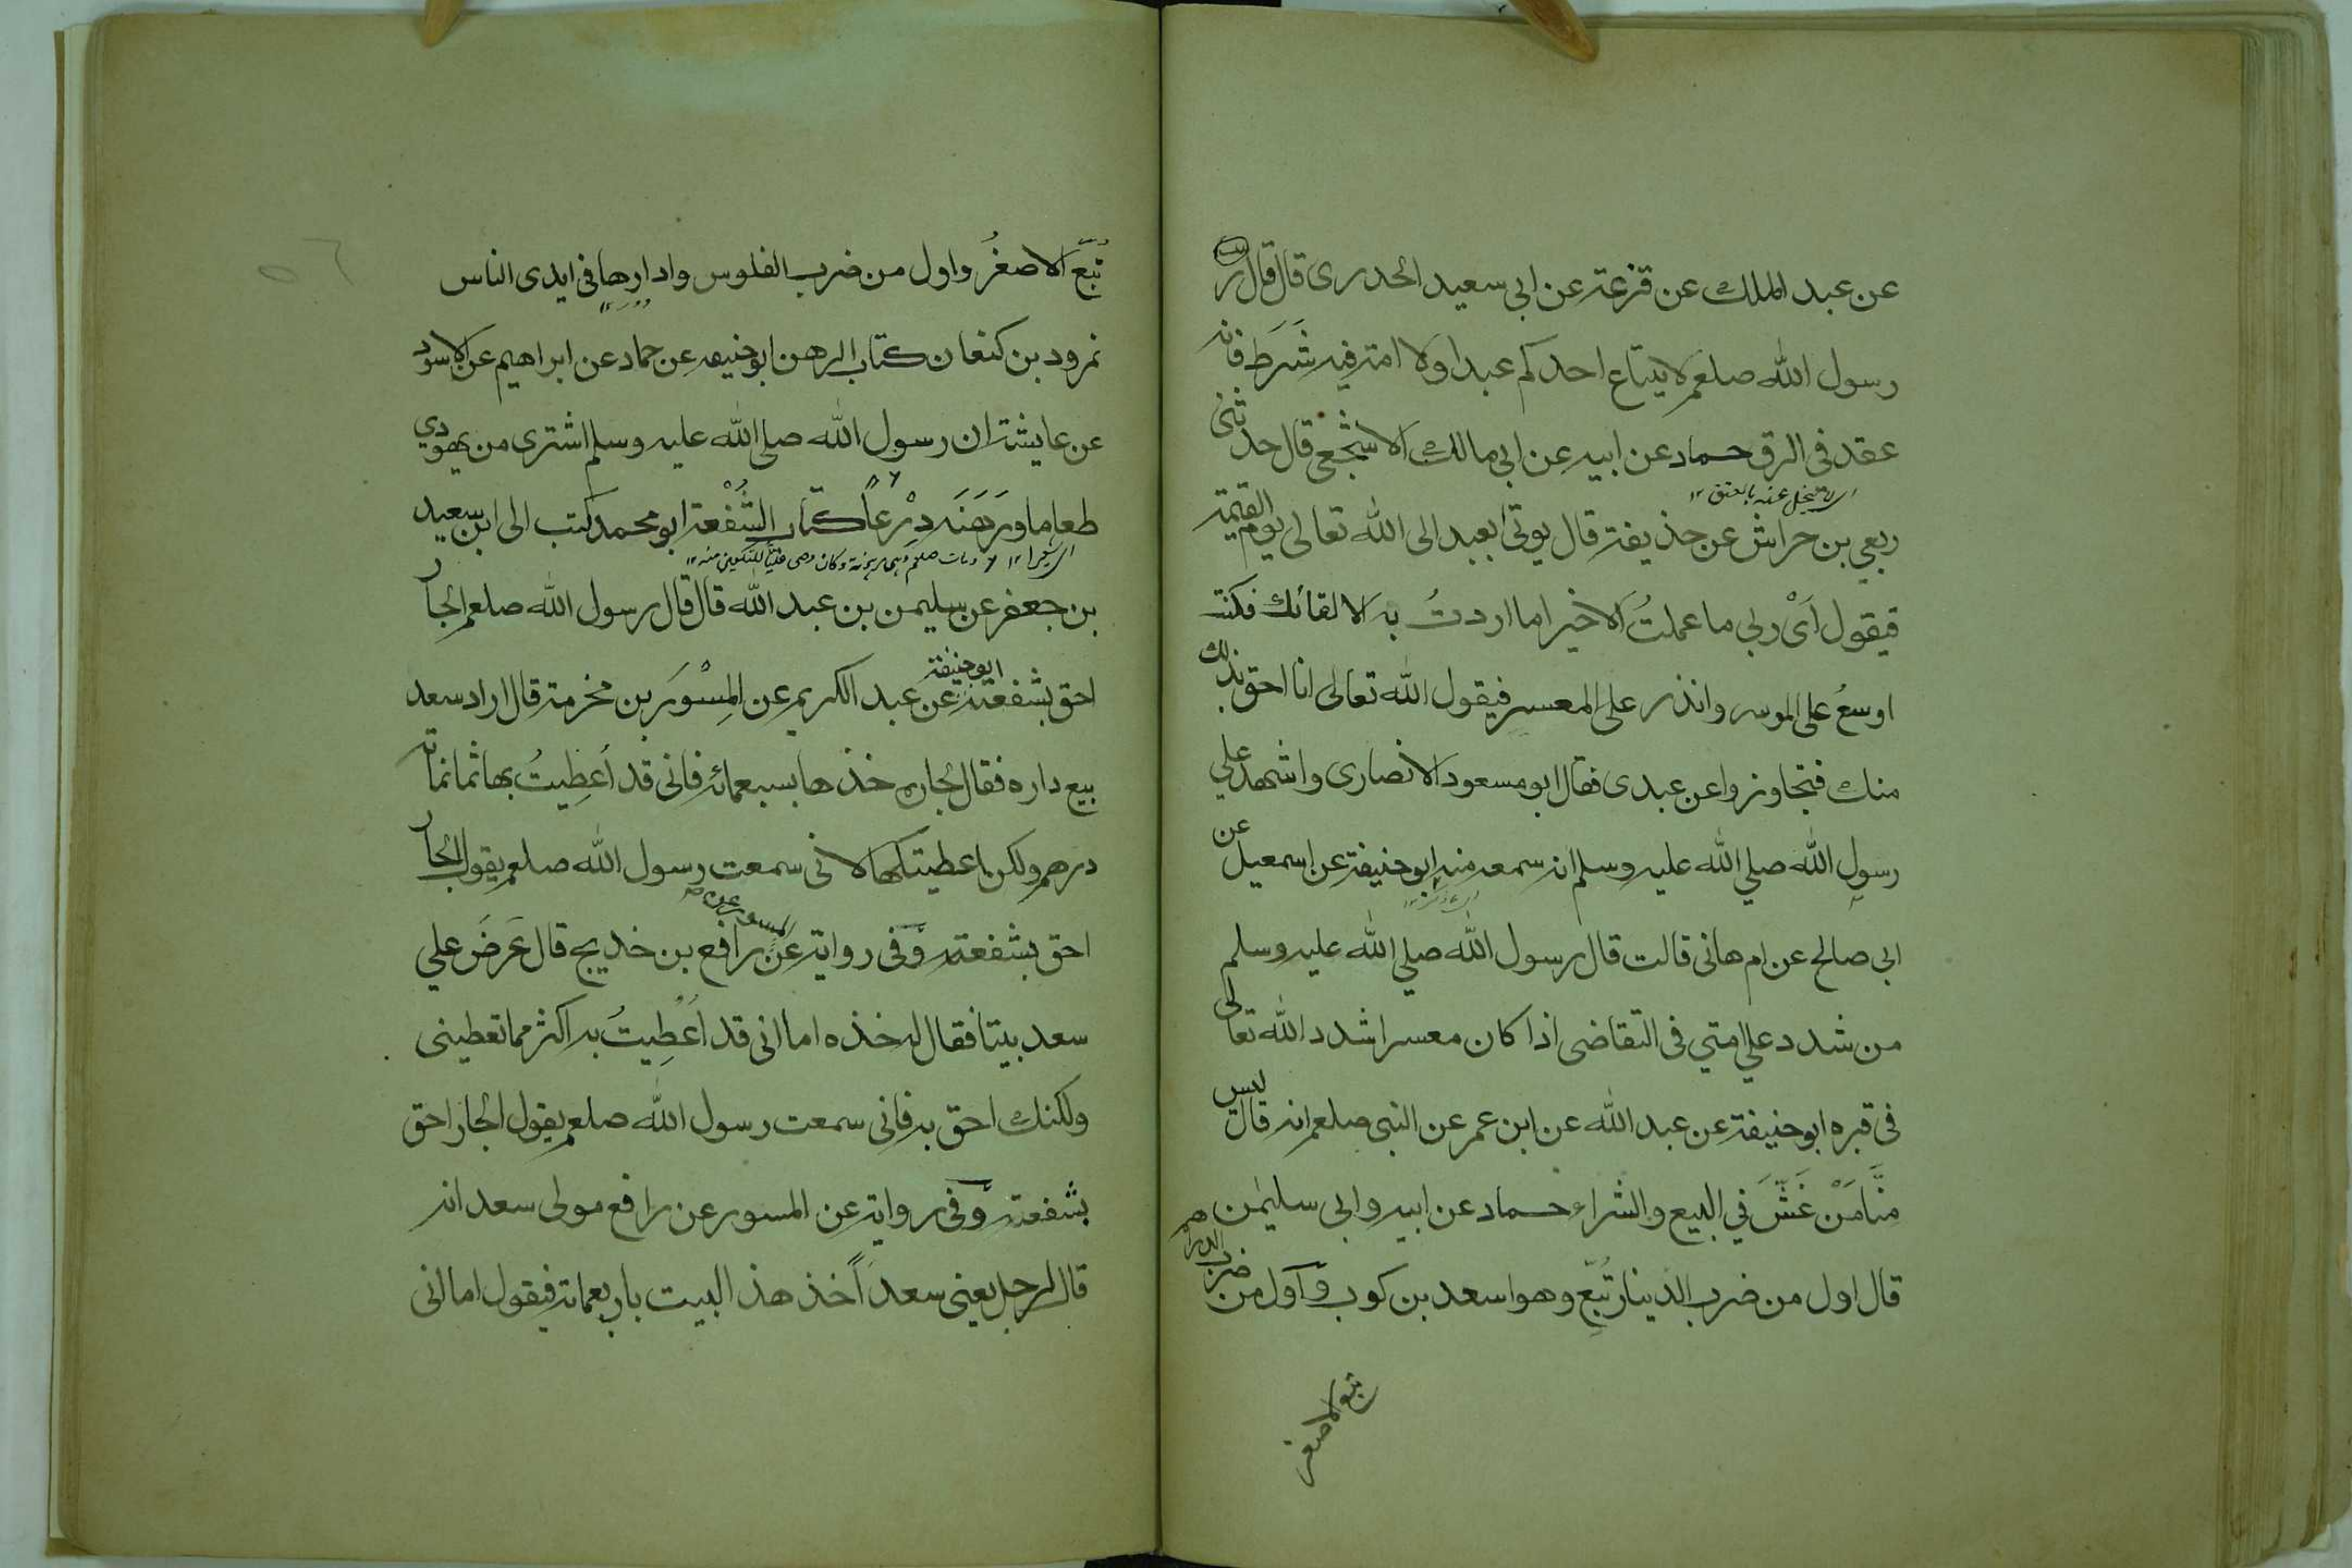 عن عبد الملك عن قزعة عن ابي سعيد الخدري قال قال
رسول الله صلعم لا يبتاع احدكم عبدا ولا امة فيه شَرَط فانه
عقد في الرق حماد عن ابيه عن ابي مالك الاشجعي قال حدثني
ربعي بن حراش عن حذيفة قال يوتى بعبد الى الله تعالى يوم القيمة
فيقول اَىْ ربي ما عملتُ الا خيرا ما اردتُ به الا لقائك فكنت
اوسعُ على الموسر وانذر على المعسر فيقول الله تعالى انا احق بذلك
منك فتجاوزوا عن عبدى فقال ابو مسعود الانصارى واشهد على
رسول الله صلي الله عليه وسلم انه سمعه منه ابو حنيفة عن اسمعيل عن
ابي صالح عن ام هانى قالت قال رسول الله صلي الله عليه وسلم
من شدد علي امتي فى التقاضى اذا كان معسرا شدد الله تعالى
فى قبره ابو حنيفة عن عبد الله عن ابن عمر عن النبى صلعم انه قال ليس
منَّا مَنْ غَشَّ في البيع والشراء حماد عن ابيه وابى سليمٰن
قال اول من ضرب الدينار تُبّع وهو اسعد بن كوب وَاول من ضرب الدراهم
تبع الاصغر
تُبّع الاصغرُ واول من ضرب الفلوس وادارها فى ايدى الناس
نمرود بن كنعان كتاب الرهن ابو حنيفه عن حماد عن ابراهيم عن الاسود
عن عايشة ان رسول الله صلى الله عليه وسلم اشترى من يهودي
طعاما ورَهَنَه دِرْعاً كتاب الشُفْعة ابو محمد كتب الى ابن سعيد
بن جعفر عن سليمن بن عبد الله قال قال رسول الله صلعم الجار
احق بشفعته ابو حنيفة عن عبد الكريم عن المِسْوَر بن مخرمة قال اراد سعد
بيع داره فقال لجاره خذها بسبعمائه فانى قد اُعطِيتُ بها ثمانمائة
درهم ولكن اعطيتكها لانى سمعت رسول الله صلعم يقول الجار
احق بشفعته وَفى رواية عن المسور عن رافع بن خديج قال عَرضَ علي
سعد بيتا فقال له خذه اما انى قد اُعْطِيتُ به اكثر مما تعطينى
ولكنك احق به فانى سمعت رسول الله صلعم يقول الجار احق
بشفعته وَفى رواية عن المسور عن رافع مولى سعد انه
قال لرجل يعنى سعداً خذ هذ البيت باربعمائة فيقول اما انى